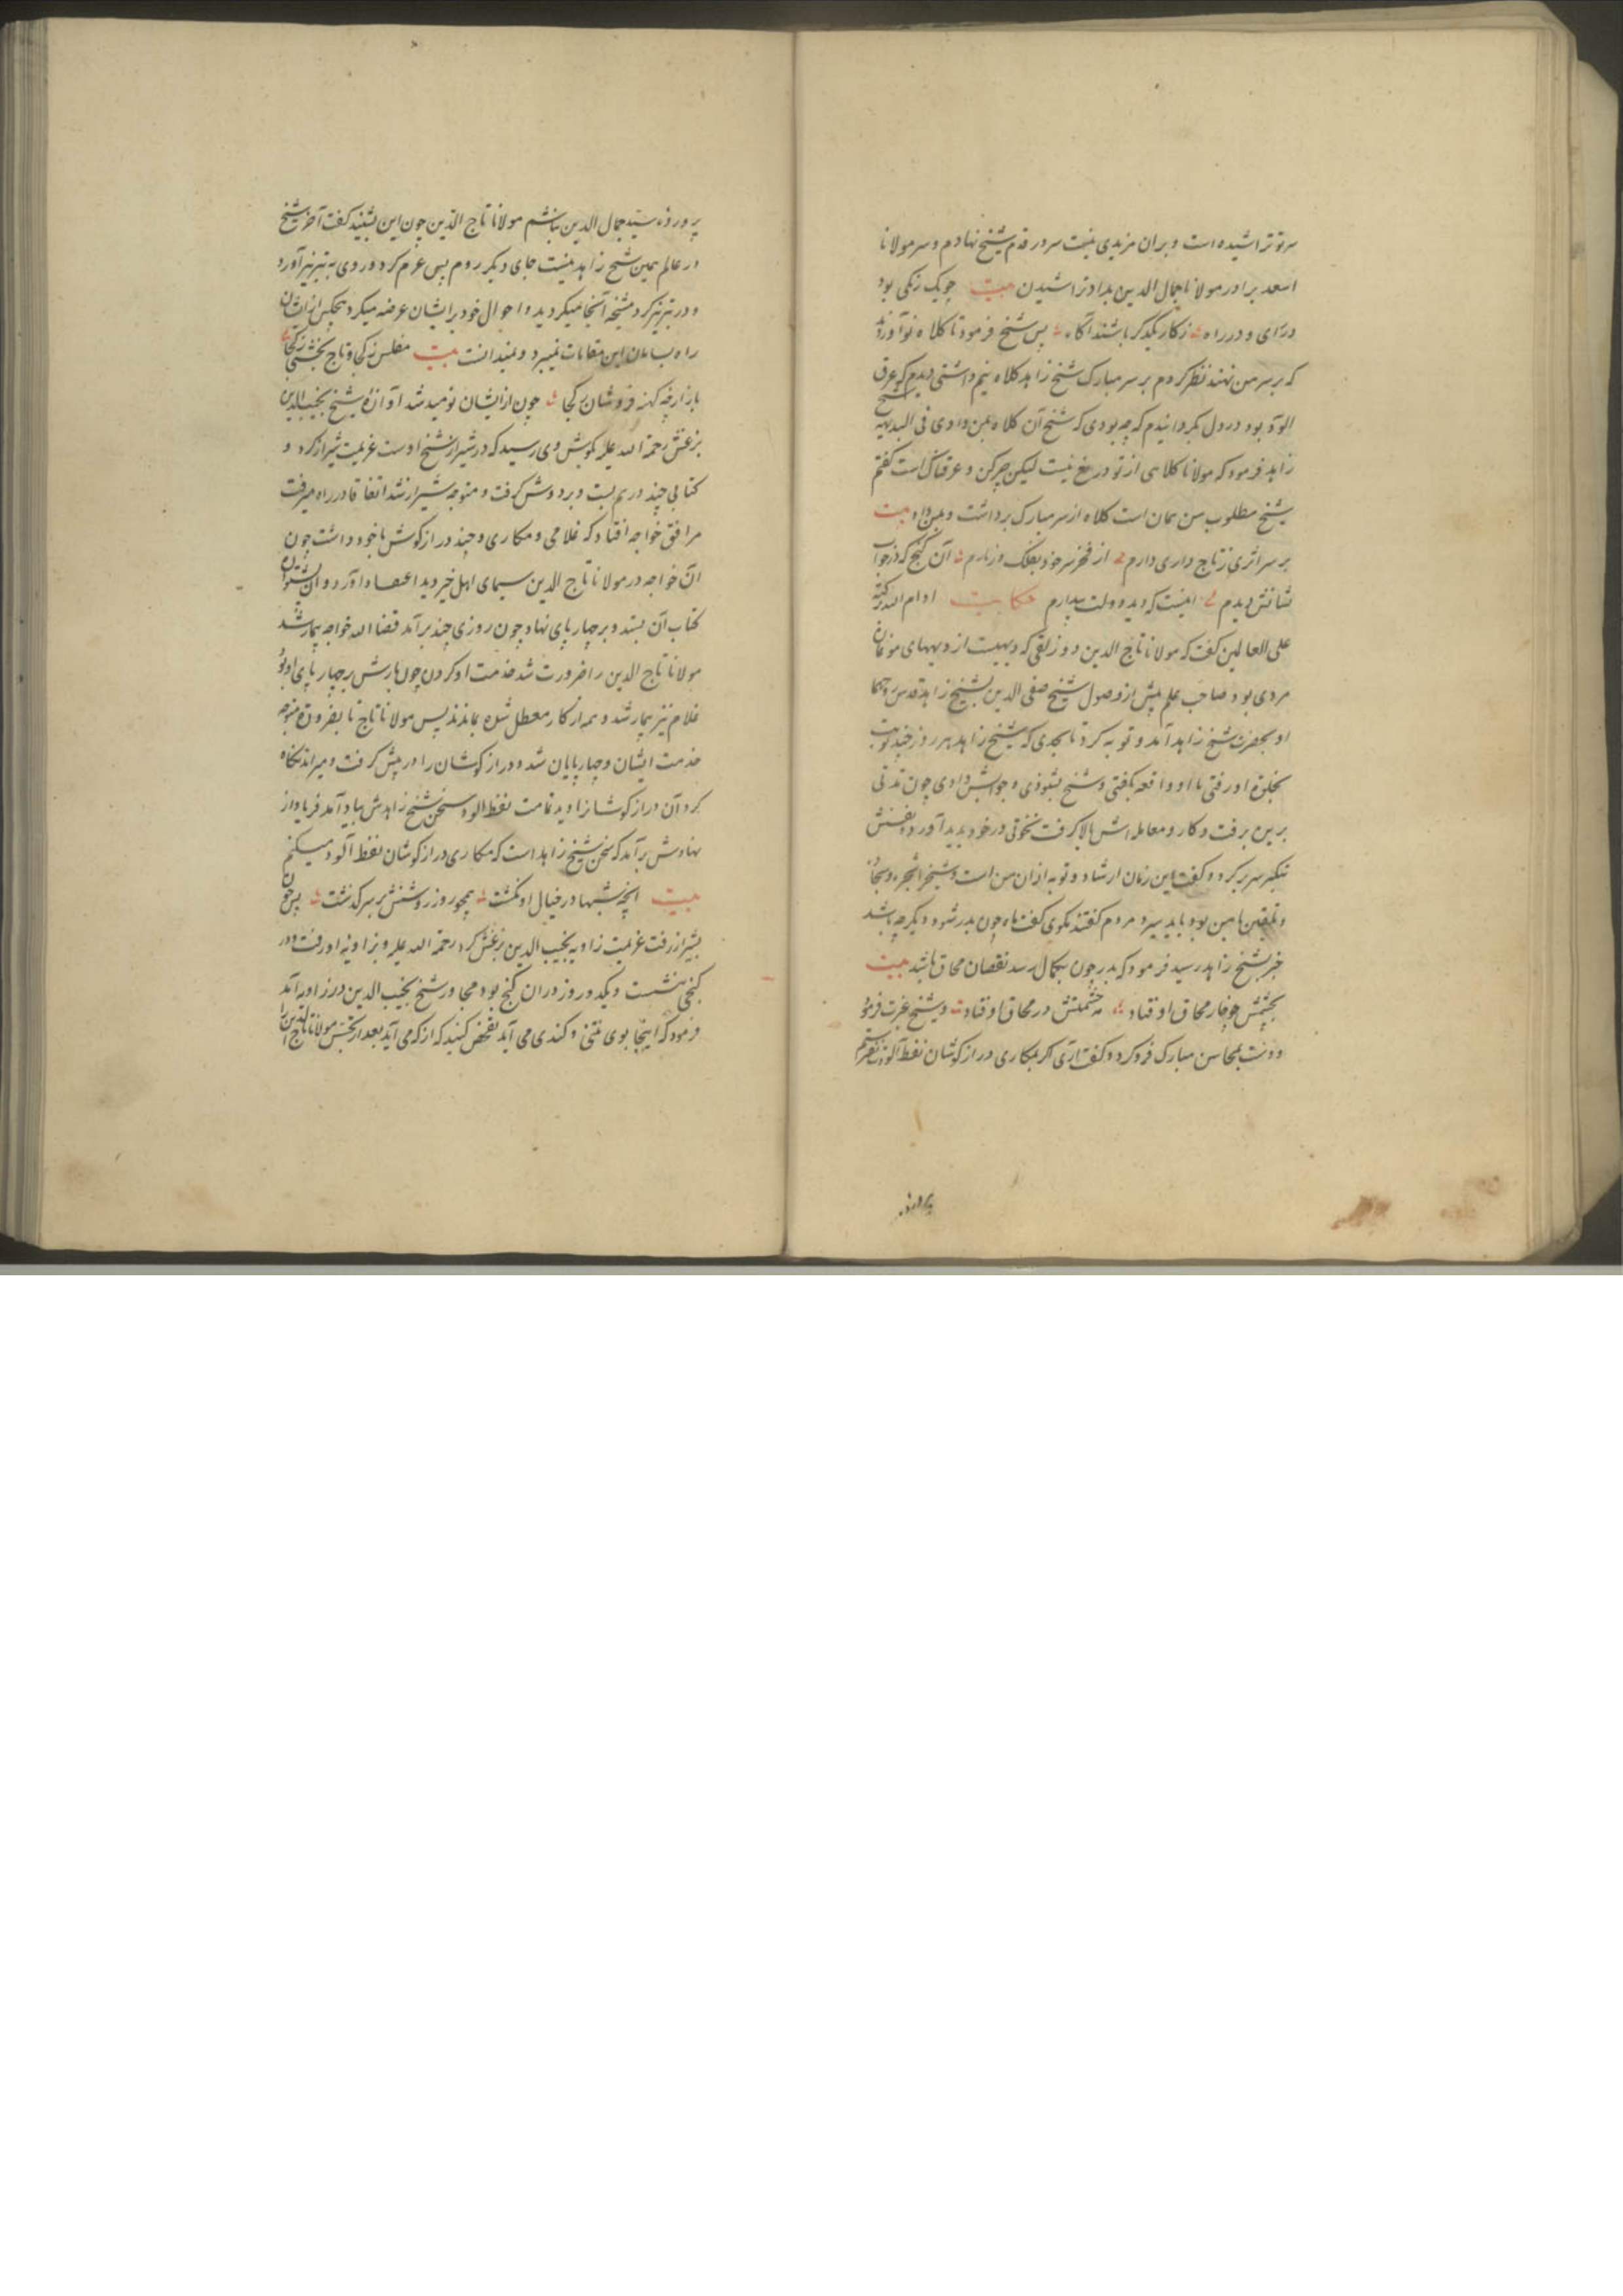 سر تو تراشیده است و بران مزیدی نیست سر در قدم شیخ نهادم و سر مولانا
اسعد برادر مولانا جمال الدین بداد تراشیدن بیت چو یک رنگی بود
در رای و در راه ز کار یکدگر باشند آگاه پس شیخ فرمود تا کلاه نو آوردند
که بر سر من نهند نظر کردم بر سر مبارک شیخ زاهد کلاه نیم داشتی دیدم که عرق
آلوده بود در دل بگردانیدم که چه بودی که شیخ آن کلاه بمن دادی فی البدیهه شیخ
زاهد فرمود که مولانا کلاهی از تو دریغ نیست لیکن چرکن و عرقناک است گفتم
شیخ مطلوب من همان است کلاه از سر مبارک برداشت و بمن داد بیت
بر سر اثری ز تاج داری دارم از فخر سر خود بفلک در نارم آن گنج که در خواب
نشانش دیدم اینست که دید دولت بیدارم حکایت ادام الله برکته
علی العالمین گفت که مولانا تاج الدین که دیهیست از دیههای موغان
مردی بود صاحب علم پیش از وصول شیخ صفی الدین بشیخ زاهد قدس روحهما
او بحضرت شیخ زاهد آمد و توبه کرد تا بحدی که شیخ زاهد هر روز چند نوبت
بخلوة او رفتی تا او واقعه بگفتی و شیخ بشنودی و جوابش دادی چون مدتی
برین برفت و کار و معامله اش بالا گرفت نخوتی در خود بدید آورد و نفسش
بتکبر سر بر کرد و گفت این زمان ارشاد و توبه ازان من است و شیخ را
و تلقین با من بود باید سپرد مردم گفتند نکوی گفت ماه چون بدر شود دیگر چه باشد
خبر بشیخ زاهد رسید فرمود که بدر چون بکمال رسد نقصان محاق باشد بیت
بچشمش خار محاق افتاد مه حشمتش در محاق اوفتاد و شیخ غیرت فرمود
و دست بمحاسن مبارک فرو کرد و گفت آری اگر بمکاری دراز گوشان نفط آلود نفرستم
پرورده
پرورده سید جمال الدین نباشم مولانا تاج الدین چون این بشنید گفت آخر شیخ
در عالم همین شیخ زاهد نیست جای دیگر روم پس عزم کرد و روی به تبریز آورد
و در تبریز گرد مشیخه آنجا میگردید و احوال خود بر ایشان عرضه میکرد هیچکس از ایشان
راه بسامان این مقامات نمیبرد و نمیدانست بیت مفلس ز کجا و تاج بخشی ز کجا
بازارچه کهنه فروشان ز کجا چون از ایشان نومید شد آوازه شیخ نجیب الدین
بزغش رحمة الله علیه بگوش وی رسید که در شیراز شیخ اوست عزیمت شیراز کرد و
کتابی چند در هم بست و بر دوش گرفت و متوجه شیراز شد اتفاقا در راه میرفت
مرافق خواجه افتاد که غلامی و مکاری و چند دراز گوش با خود داشت چون
آن خواجه در مولانا تاج الدین سیمای اهل خیر دید اعتقاد آورد و آن پشتواره
کتاب آن بستد و بر چهار پای نهاد چون روزی چند برآمد قضاء الله خواجه بیمار شد
مولانا تاج الدین را ضرورت شد خدمت او کردن چون بارش بر چهار پای او بود
غلام نیز بیمار شد و همه از کار معطل شده بماندند پس مولانا تاج تا بضرورة متوجه
خدمت ایشان و چهار پایان شد و دراز گوشان را در پیش گرفت و میراند نگاه
کرد آن دراز گوشانرا دید تمامت نفط آلود سخن شیخ زاهدش بیاد آمد فریاد از
نهادش برآمد که سخن شیخ زاهد است که مکاری دراز گوشان نفط آلود میکنم
بیت آنچه شبها در خیال او نگشت همچو روز روشنش بر سر گذشت پس چون
بشیراز رفت عزیمت زاویه نجیب الدین بزغش کرد رحمة الله علیه و بزاویه او رفت و در
کنجی بنشست و یک دو روز در آن کنج بود مجاور شیخ نجیب الدین در زاویه آمد
فرمود که اینجا بوی نتنی و گندی می آید تفحص کنید که از که می آید بعد از تجسس مولانا تاج الدین را